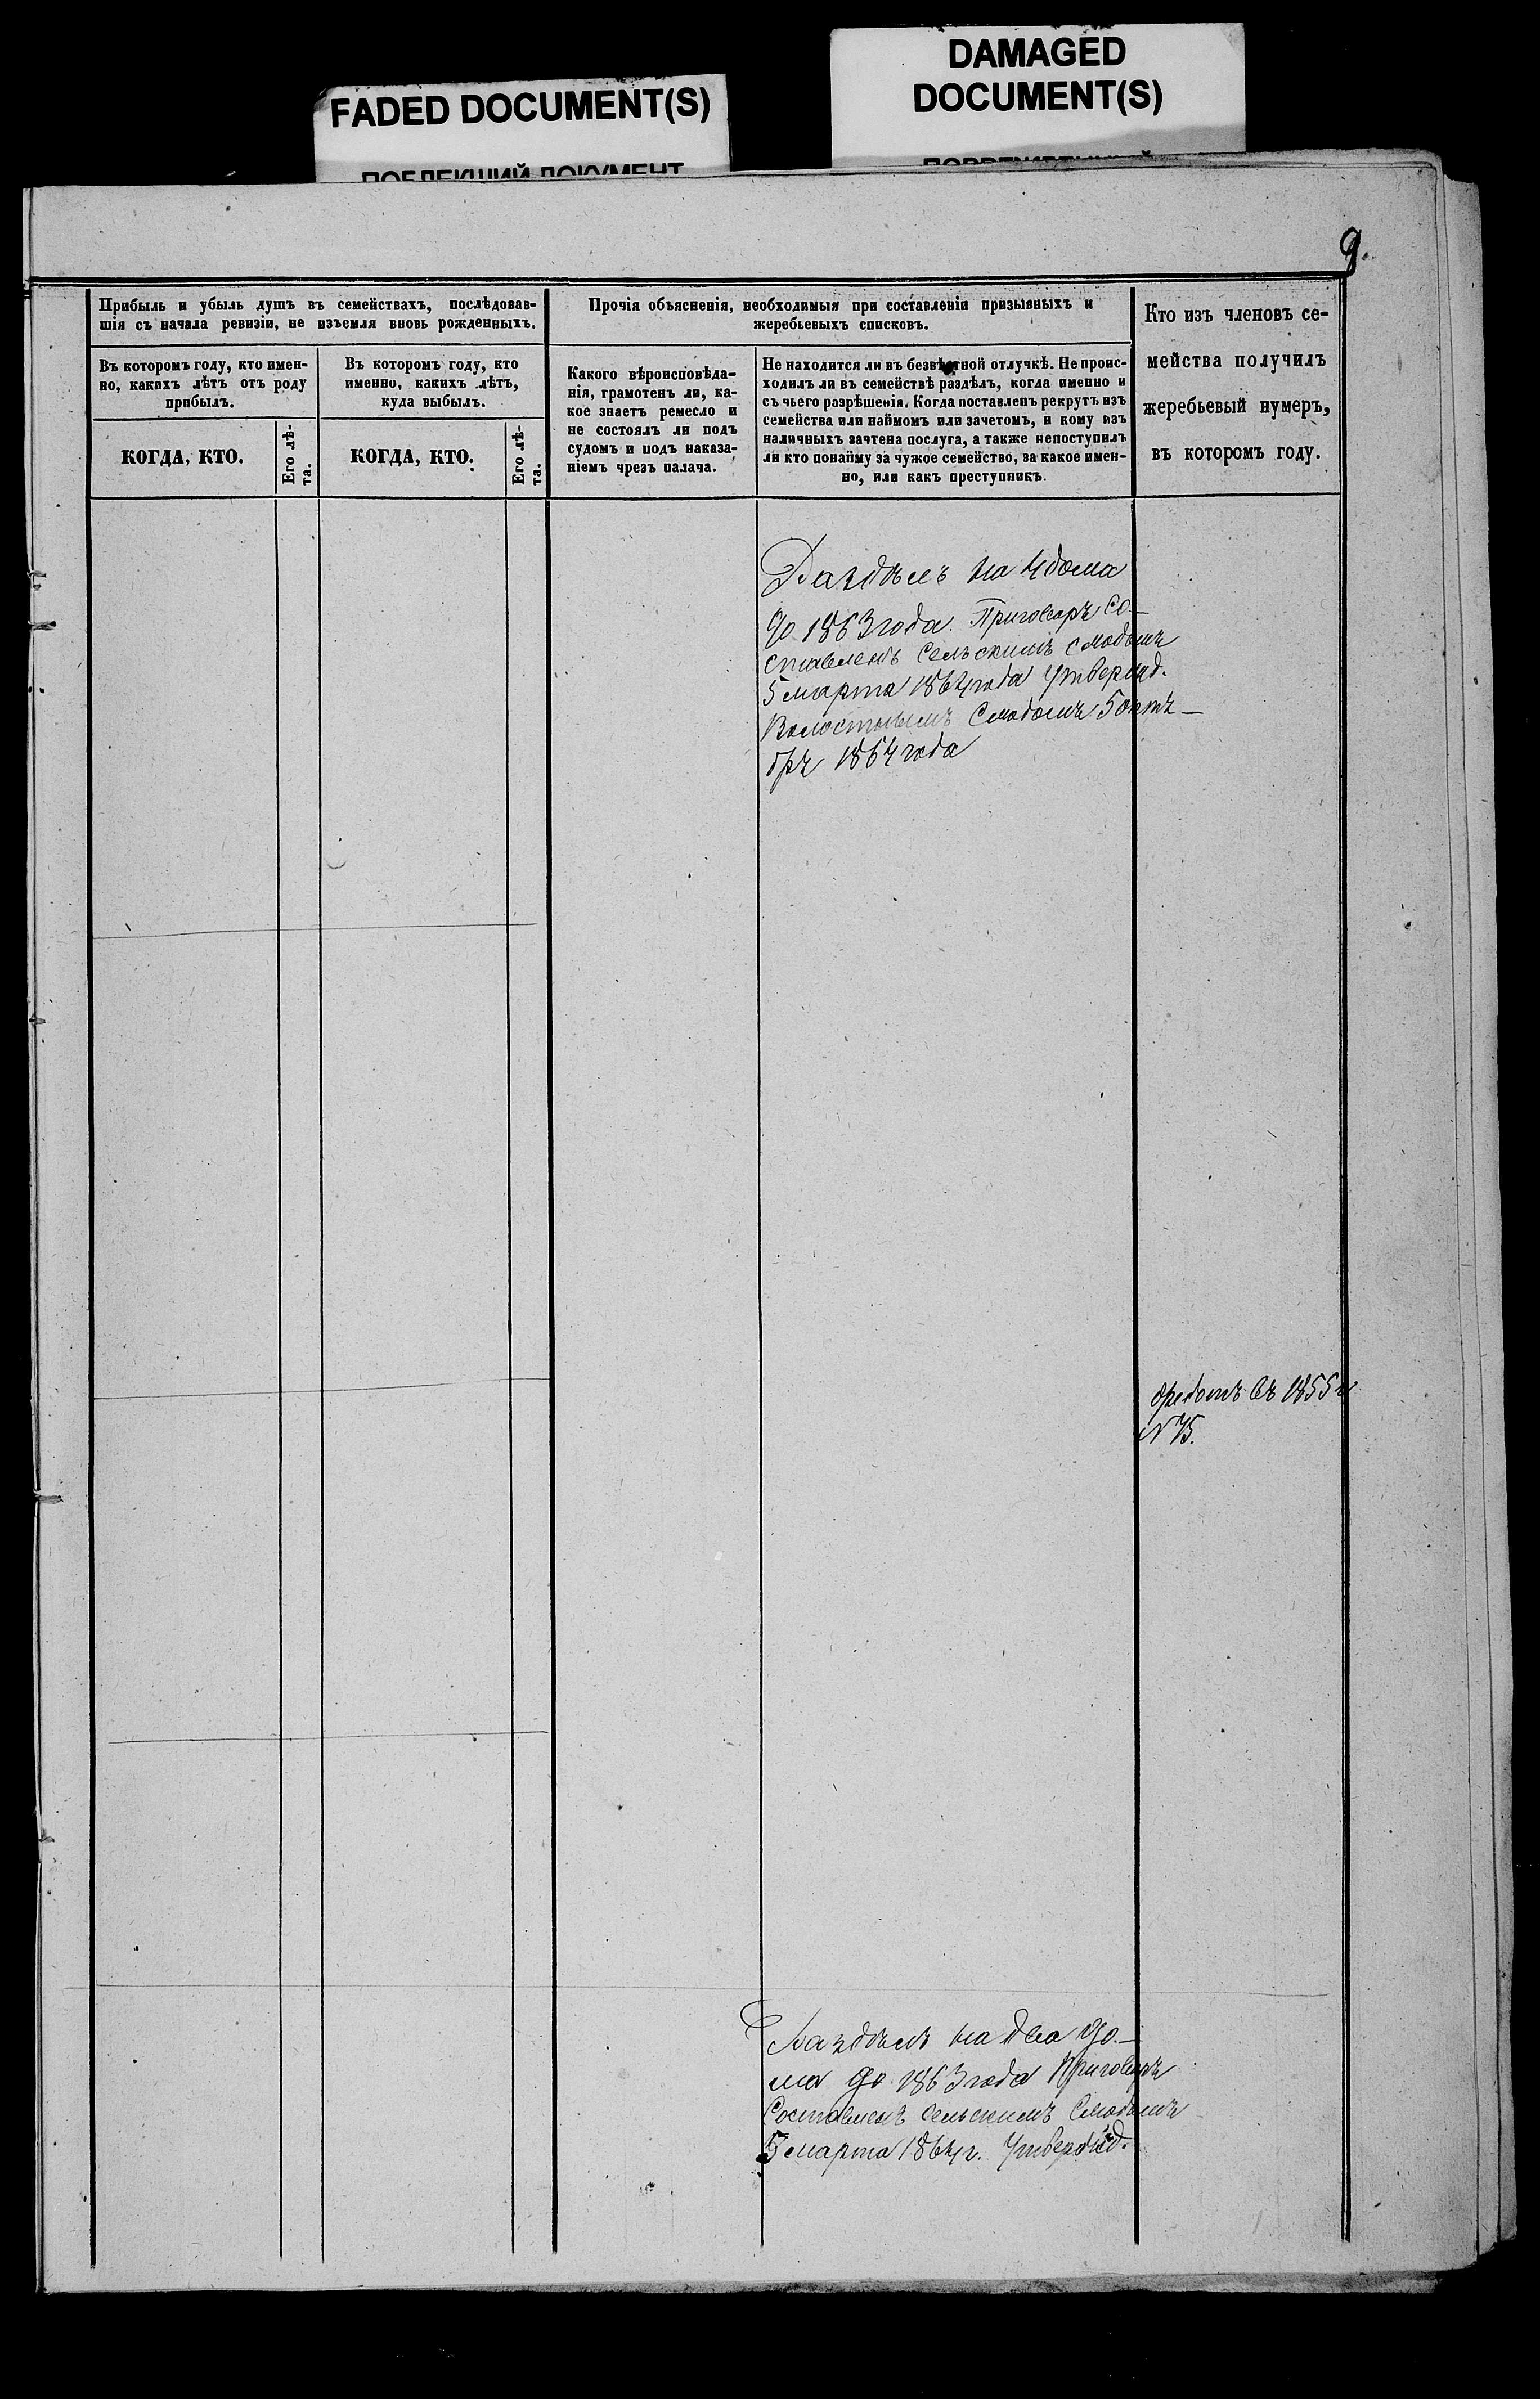 FADED DOCUMENT(S)
DAMAGED
DOCUMENT(S)
ПОБЛЕКШИЙ ДОКУМЕНТ
9.
Прибыль и убыль душъ въ семействахъ, послѣдовав-
шія съ начала ревизіи, не изъемля вновь рожденныхъ.
Въ которомъ году, кто имен-
но, какихъ лѣтъ отъ роду
прибылъ.
Въ которомъ году, кто
именно, какихъ лѣтъ,
куда выбылъ.
КОГДА, КТО.
Его лѣ-
та.
КОГДА, КТО.
Его лѣ-
та.
Прочія объясненія, необходимыя при составленіи призывныхъ и
жеребьевыхъ списковъ.
Какого вѣроисповѣда-
нія, грамотенъ ли, ка-
кое знаетъ ремесло и
не состоялъ ли подъ
судомъ и подъ наказа-
ніемъ чрезъ палача.
Не находится ли въ безвѣстной отлучкѣ. Не проис-
ходилъ ли въ семействѣ раздѣлъ, когда именно и
съ чьего разрѣшенія. Когда поставленъ рекрутъ изъ
семейства или наймомъ или зачетомъ, и кому изъ
наличныхъ зачтена послуга, а также непоступилъ
ли кто понайму за чужое семейство, за какое имен-
но, или какъ преступникъ.
Кто изъ членовъ се-
мейства получилъ
жеребьевый нумеръ,
въ которомъ году.
Раздѣлъ на 4 дома
до 1863 года. Приговоръ со-
ставленъ сельскимъ сходомъ
5 марта 1864 года Утвержд.
Волостнымъ Сходомъ 5 октя-
бря 1864 года
въ 1855 г
N 75.
Раздѣлъ на два до-
ма до 1863 года Приговоръ
Составленъ сельскимъ Сходомъ
5 марта 1864 г. Утвержд.